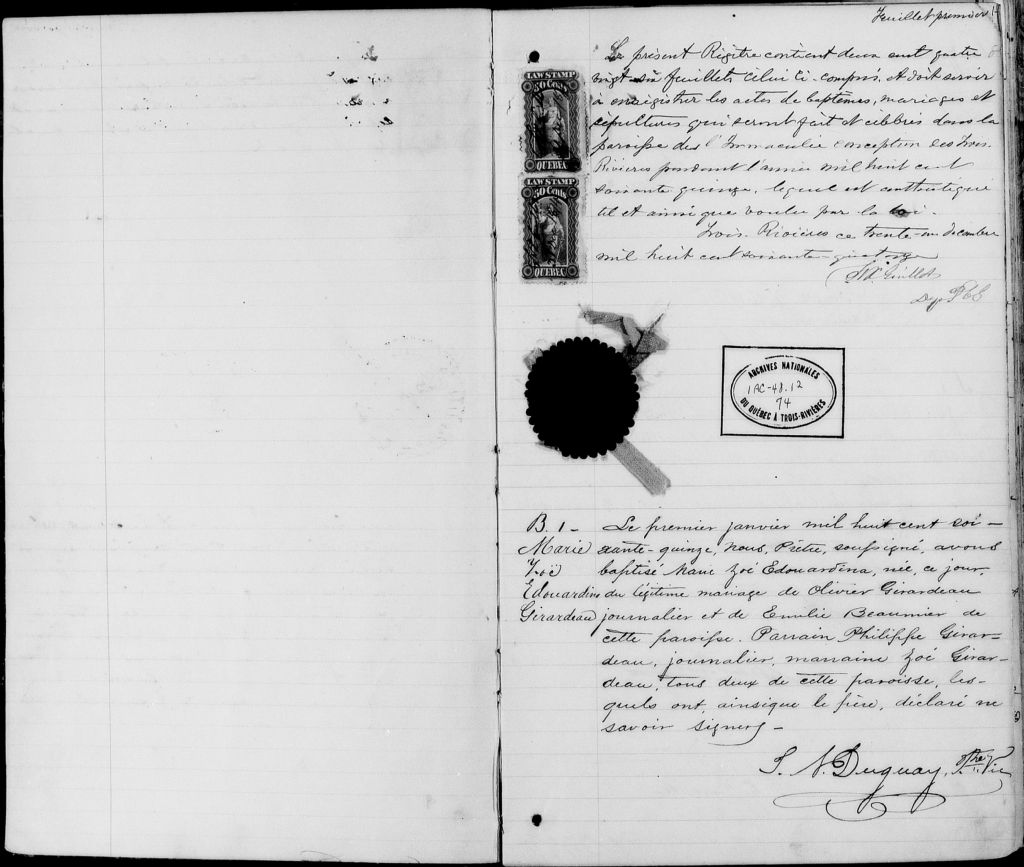 Feuillet premier
Le présent Régître contient deux cent quatre
vingt six feuillets celui ci compris, et doit servir
à enregistrer les actes de baptêmes, mariages et
sépultures qui seront fait et célébrés dans la
paroisse de l'Immaculée conception des Trois
Rivières pendant l'année mil huit cent
soixante quinze, lequel est authentique
et ainsi que voulu par la loi.
Trois-Rivières ce trente-un decembre
mil huit cent soixante-quatorze
Dep P C S
LAW STAMP
50 Cents
QUEBEC
LAW STAMP
50 Cents
QUEBEC
ARCHIVES NATIONALES
1AC-48.12
74
DU QUÉBEC À TROIS-RIVIÈRES
B. 1 -
Marie
Zoé
Edouardine
Girardeau
Le premier janvier mil huit cent soi-
xante-quinze, nous, Prêtre, soussigné, avons
baptisé Marie Zoé Edouardina, née, ce jour,
du légitime mariage de Olivier Girardeau
journalier et de Emilie Beaumier de
cette paroisse. Parrain Philippe Girar-
deau, journalier, marraine Zoé Girar-
deau, tous deux de cette paroisse, les-
quels ont, ainsique le père, déclaré ne
savoir signer -
S. N. Duguay, Ptre Vic